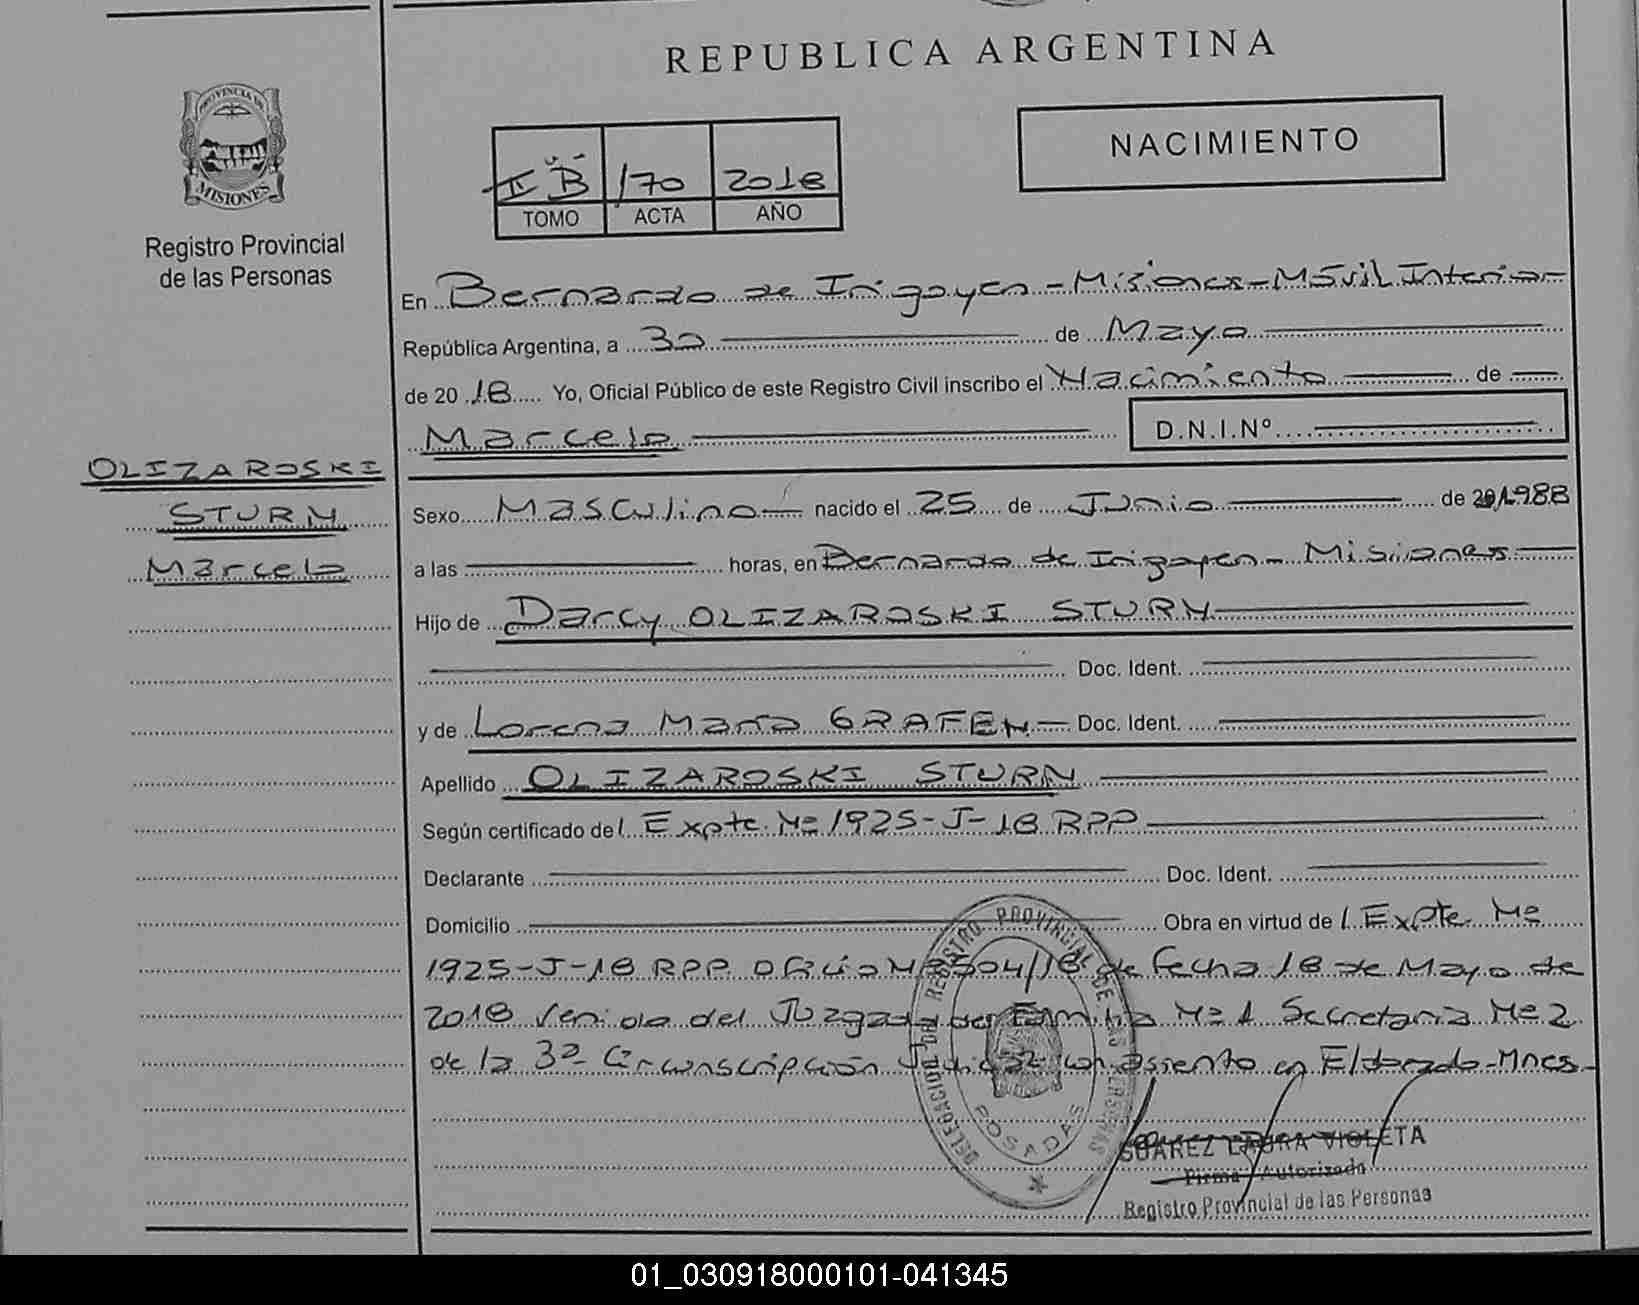 REPUBLICA ARGENTINA
PROVINCIA DE
MISIONES
Registro Provincial
de las Personas
NACIMIENTO
II "B" 170 2018
TOMO ACTA AÑO
En Bernardo de Irigoyen - Misiones - Móvil Interior
República Argentina, a 30 de Mayo
de 2018 Yo, Oficial Público de este Registro Civil inscribo el Nacimiento de
Marcelo D.N.I.Nº
OLIZAROSKI
STURM
Marcelo
Sexo Masculino nacido el 25 de Junio de 1988
a las horas, en Bernardo de Irigoyen - Misiones
Hijo de Darcy OLIZAROSKI STURM
Doc. Ident.
y de Lorena Marta GRAFEN Doc. Ident.
Apellido OLIZAROSKI STURM
Según certificado del Expte. Nº 1925-J-18 RPP
Declarante Doc. Ident.
Domicilio Obra en virtud del Expte Nº
1925-J-18 RPP Oficio Nº 504/18 de fecha 18 de Mayo de
2018 Venido del Juzgado de Familia Nº 1 Secretaria Nº 2
de la 3ª Circunscripción Judicial con asiento en Eldorado-Mnes-
DELEGACION DEL REGISTRO PROVINCIAL DE LAS PERSONAS
POSADAS
SUAREZ LAURA VIOLETA
Firma Autorizada
Registro Provincial de las Personas
01_030918000101-041345